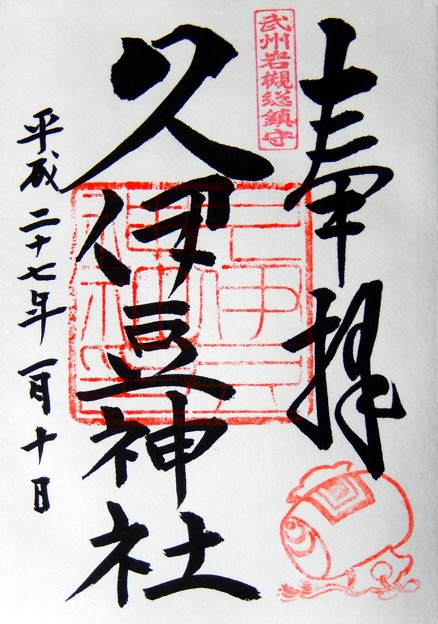 奉拝
武州岩槻総鎮守
久伊豆神社
平成二十七年一月十日